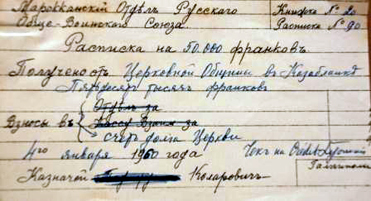 Марокканскій Отдѣлъ Русскаго Книжка № 20
Обще-Воинскаго Союза. Расписка № 90
Расписка на 50.000 франковъ
Получено отъ Церковной Общины въ Казабланкѣ
Пятьдесятъ тысячъ франковъ
Отдѣлъ за
Взносы въ Кассу Взаим за
счетъ долга Церкви
4го января 1960 года Чекъ на Credit Lyonnais
Казначей Коларовичъ